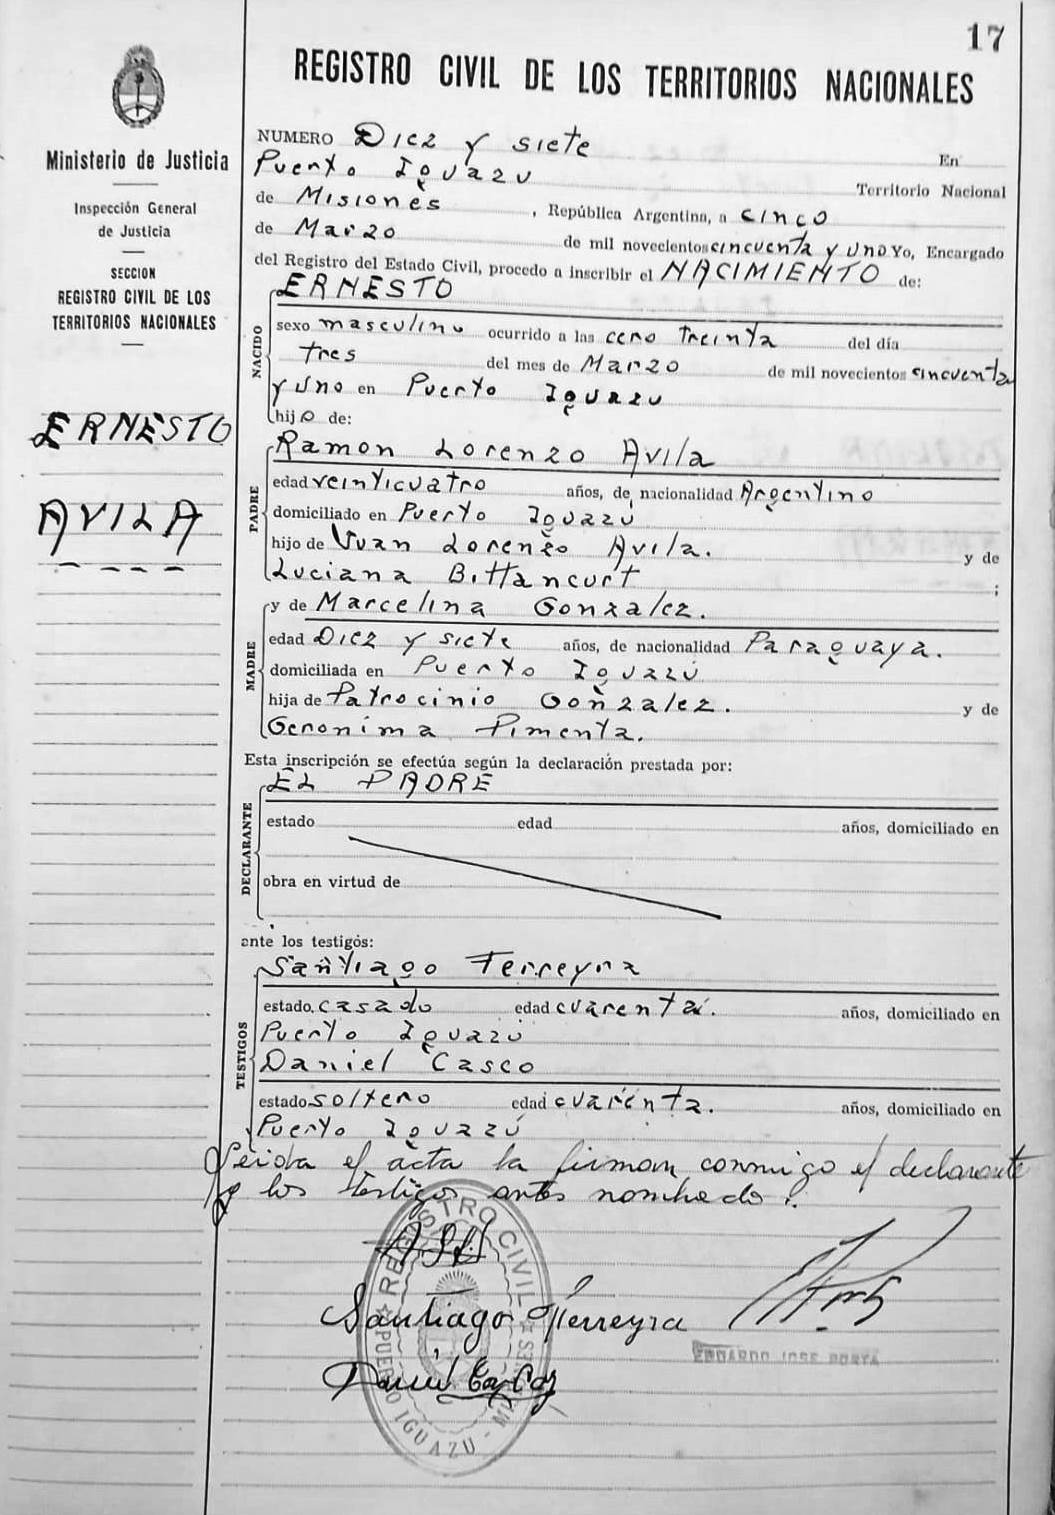 17
REGISTRO CIVIL DE LOS TERRITORIOS NACIONALES
Ministerio de Justicia
Inspección General
de Justicia
SECCION
REGISTRO CIVIL DE LOS
TERRITORIOS NACIONALES
ERNESTO
AVILA
NUMERO Diez y siete En
Puerto Iguazu Territorio Nacional
de Misiones, República Argentina, a cinco
de Marzo de mil novecientos cincuenta y uno Yo, Encargado
del Registro del Estado Civil, procedo a inscribir el NACIMIENTO de:
NACIDO
ERNESTO
sexo masculino ocurrido a las cero treinta del día
tres del mes de Marzo de mil novecientos cincuenta
y uno en Puerto Iguazu
hijo de:
PADRE
Ramon Lorenzo Avila
edad veinticuatro años, de nacionalidad Argentino
domiciliado en Puerto Iguazú
hijo de Juan Lorenzo Avila. y de
Luciana Bittancurt ;
MADRE
y de Marcelina Gonzalez.
edad Diez y siete años, de nacionalidad Paraguaya.
domiciliada en Puerto Iguazú
hija de Patrocinio Gonzalez. y de
Geronima Pimenta.
Esta inscripción se efectúa según la declaración prestada por:
DECLARANTE
EL PADRE
estado edad años, domiciliado en
obra en virtud de
ante los testigos:
TESTIGOS
Santiago Ferreyra
estado casado edad cuarenta. años, domiciliado en
Puerto Iguazú
Daniel Casco
estado soltero edad cuarenta. años, domiciliado en
Puerto Iguazú
Leida el acta la firman conmigo el declarante
y los testigos antes nombrados.
REGISTRO CIVIL
PUERTO IGUAZU - MISIONES
Santiago Ferreyra
EDUARDO JOSE PORTA
Daniel